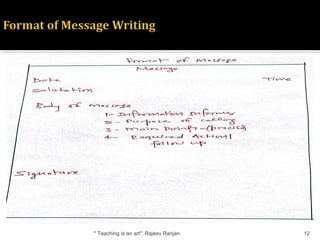 Format of Message Writing
Format of Message
Message
Date Time
Salutation
Body of Message
1- Information Informer
2 - Purpose of calling
3 - Main points-(precise)
4- Required Action/
follow up
Signature
" Teaching is an art". Rajeev Ranjan 12